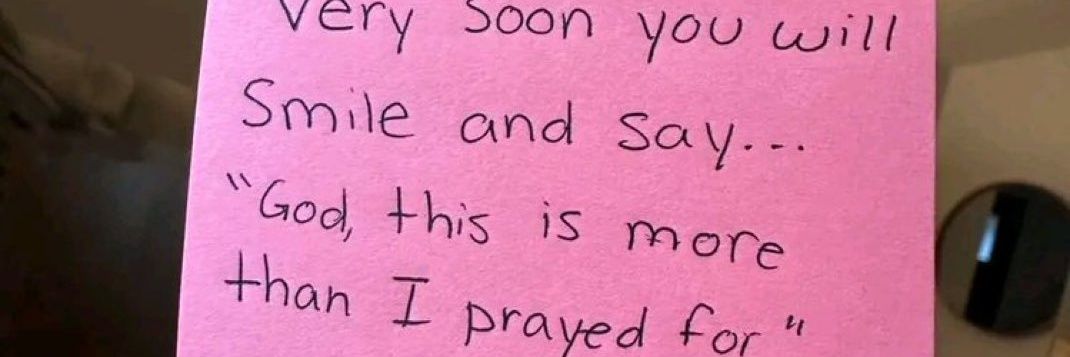 Very Soon you will
Smile and say...
"God, this is more
than I prayed for"